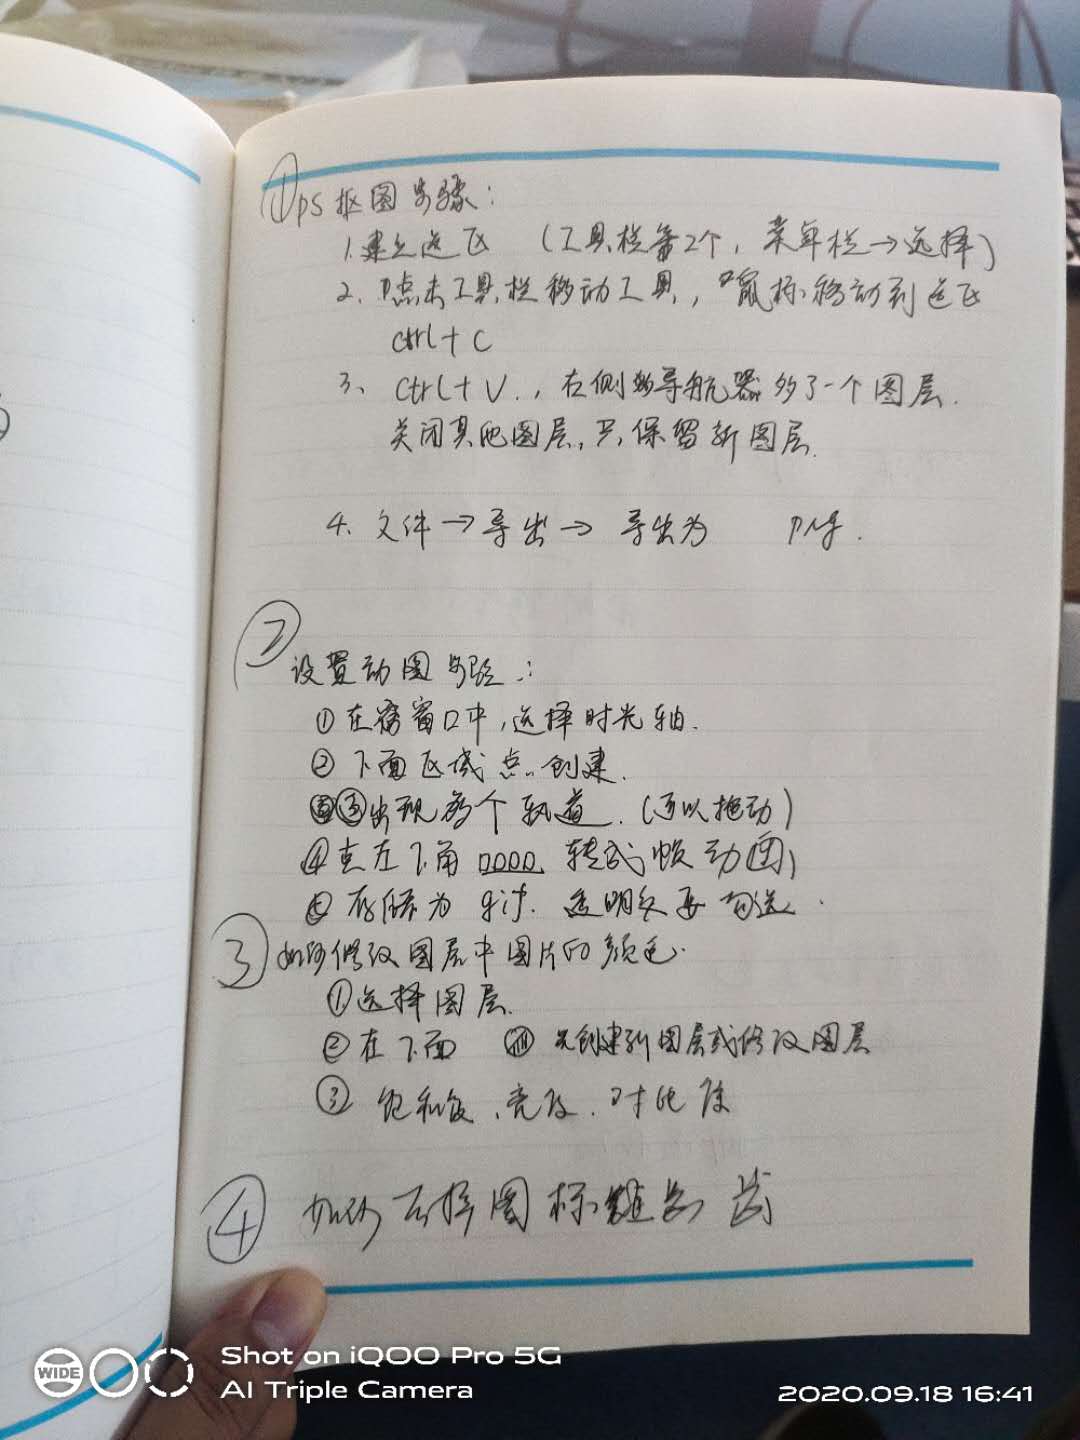 ①PS抠图步骤:
1.建立选区 (工具栏第2个,菜单栏→选择)
2、点击工具栏移动工具,鼠标移动到选区
ctrl+C
3、ctrl+V.,右侧的导航器多了一个图层.
关闭其他图层,只保留新图层.
4.文件→导出→导出为 png.
②
设置动图步骤:
①在窗口中,选择时光轴.
②下面区域点创建.
③出现每个轨道.(可以拖动)
④点左下角□□□□ 转成帧动画
⑤存储为gif.透明度要勾选.
③如何修改图层中图片的颜色.
①选择图层.
②在下面 先创建新图层或修改图层
③饱和度、亮度、对比度
④ 如何 图标
WIDE
Shot on iQOO Pro 5G
AI Triple Camera
2020.09.18 16:41